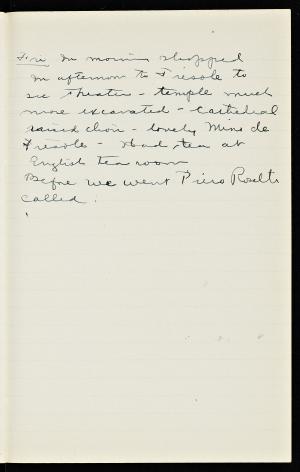 Fri In morning shopped
In afternoon to Fiesole to
see theatre - temple much
more excavated - Cathedral
raised choir - lovely Mino da
Fiesole - Had tea at
English tea room
Before we went Piero
called.